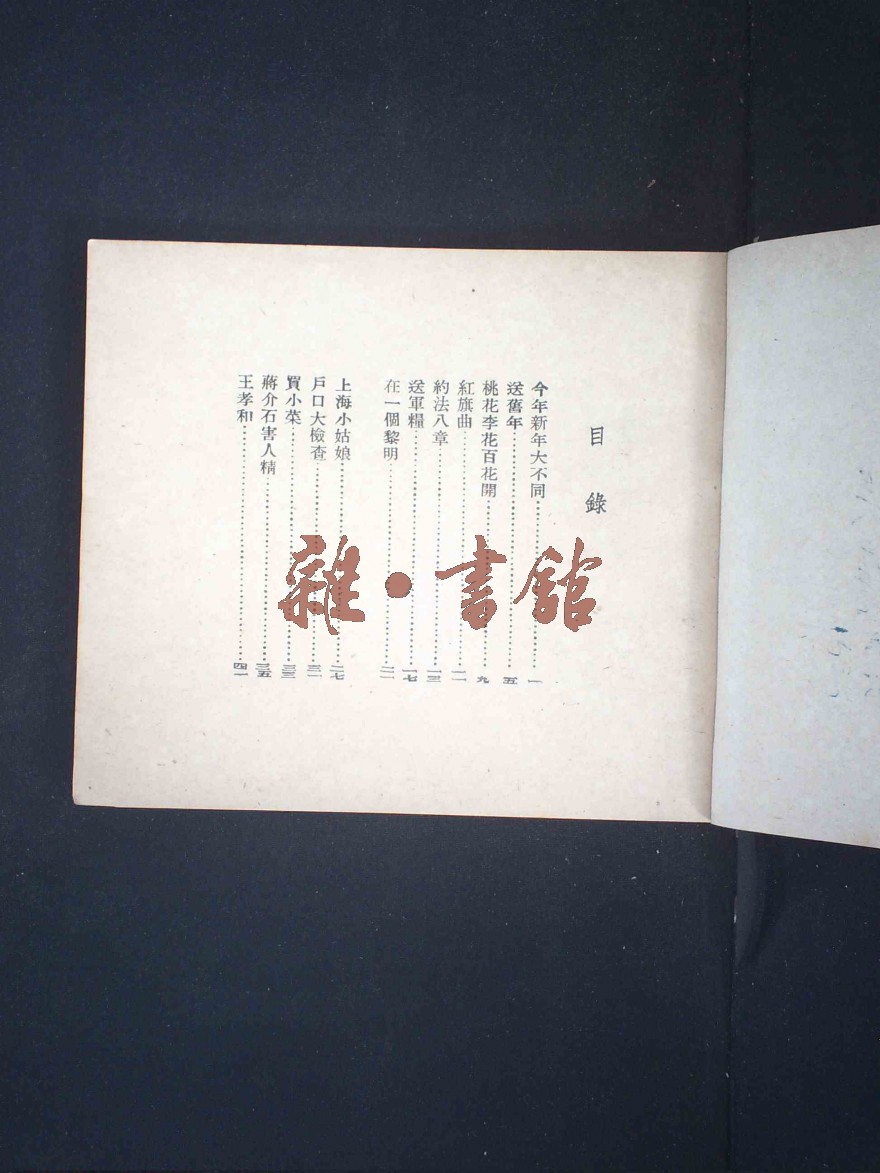 目錄
今年新年大不同……一
送舊年……五
桃花李花百花開……九
紅旗曲……一一
約法八章……一三
送軍糧……一七
在一個黎明……二一
上海小姑娘……二七
戶口大檢查……三一
買小菜……三三
蔣介石害人精……三五
王孝和……四一
雜·書館